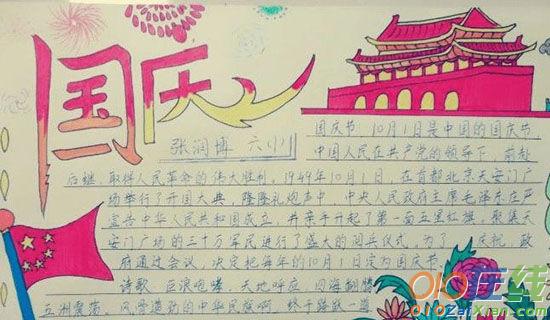 国庆
张润博 六(1)
国庆节，10月1日是中国的国庆节，
中国人民在共产党的领导下，前赴
后继，取得人民革命的伟大胜利，1949年10月1日，在首都北京天安门广
场举行了开国大典，隆隆礼炮声中，中央人民政府主席毛泽东庄严
宣告中华人民共和国成立，并亲手升起了第一面五星红旗，聚集天
安门广场的三十万军民进行了盛大的阅兵仪式，为了 庆祝，政
府通过会议，决定把每年的10月1日定为国庆节。
诗歌：巨浪咆哮，天地呼应，四海翻腾
五洲震荡，风雷激动的中华民族啊，终于踏跃一道
在线
ZaiXian.com